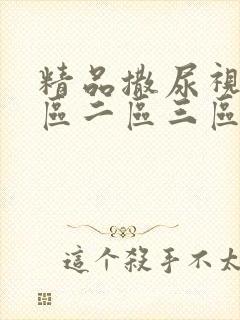 精品撒尿視
區二區三區
這个殺手不太